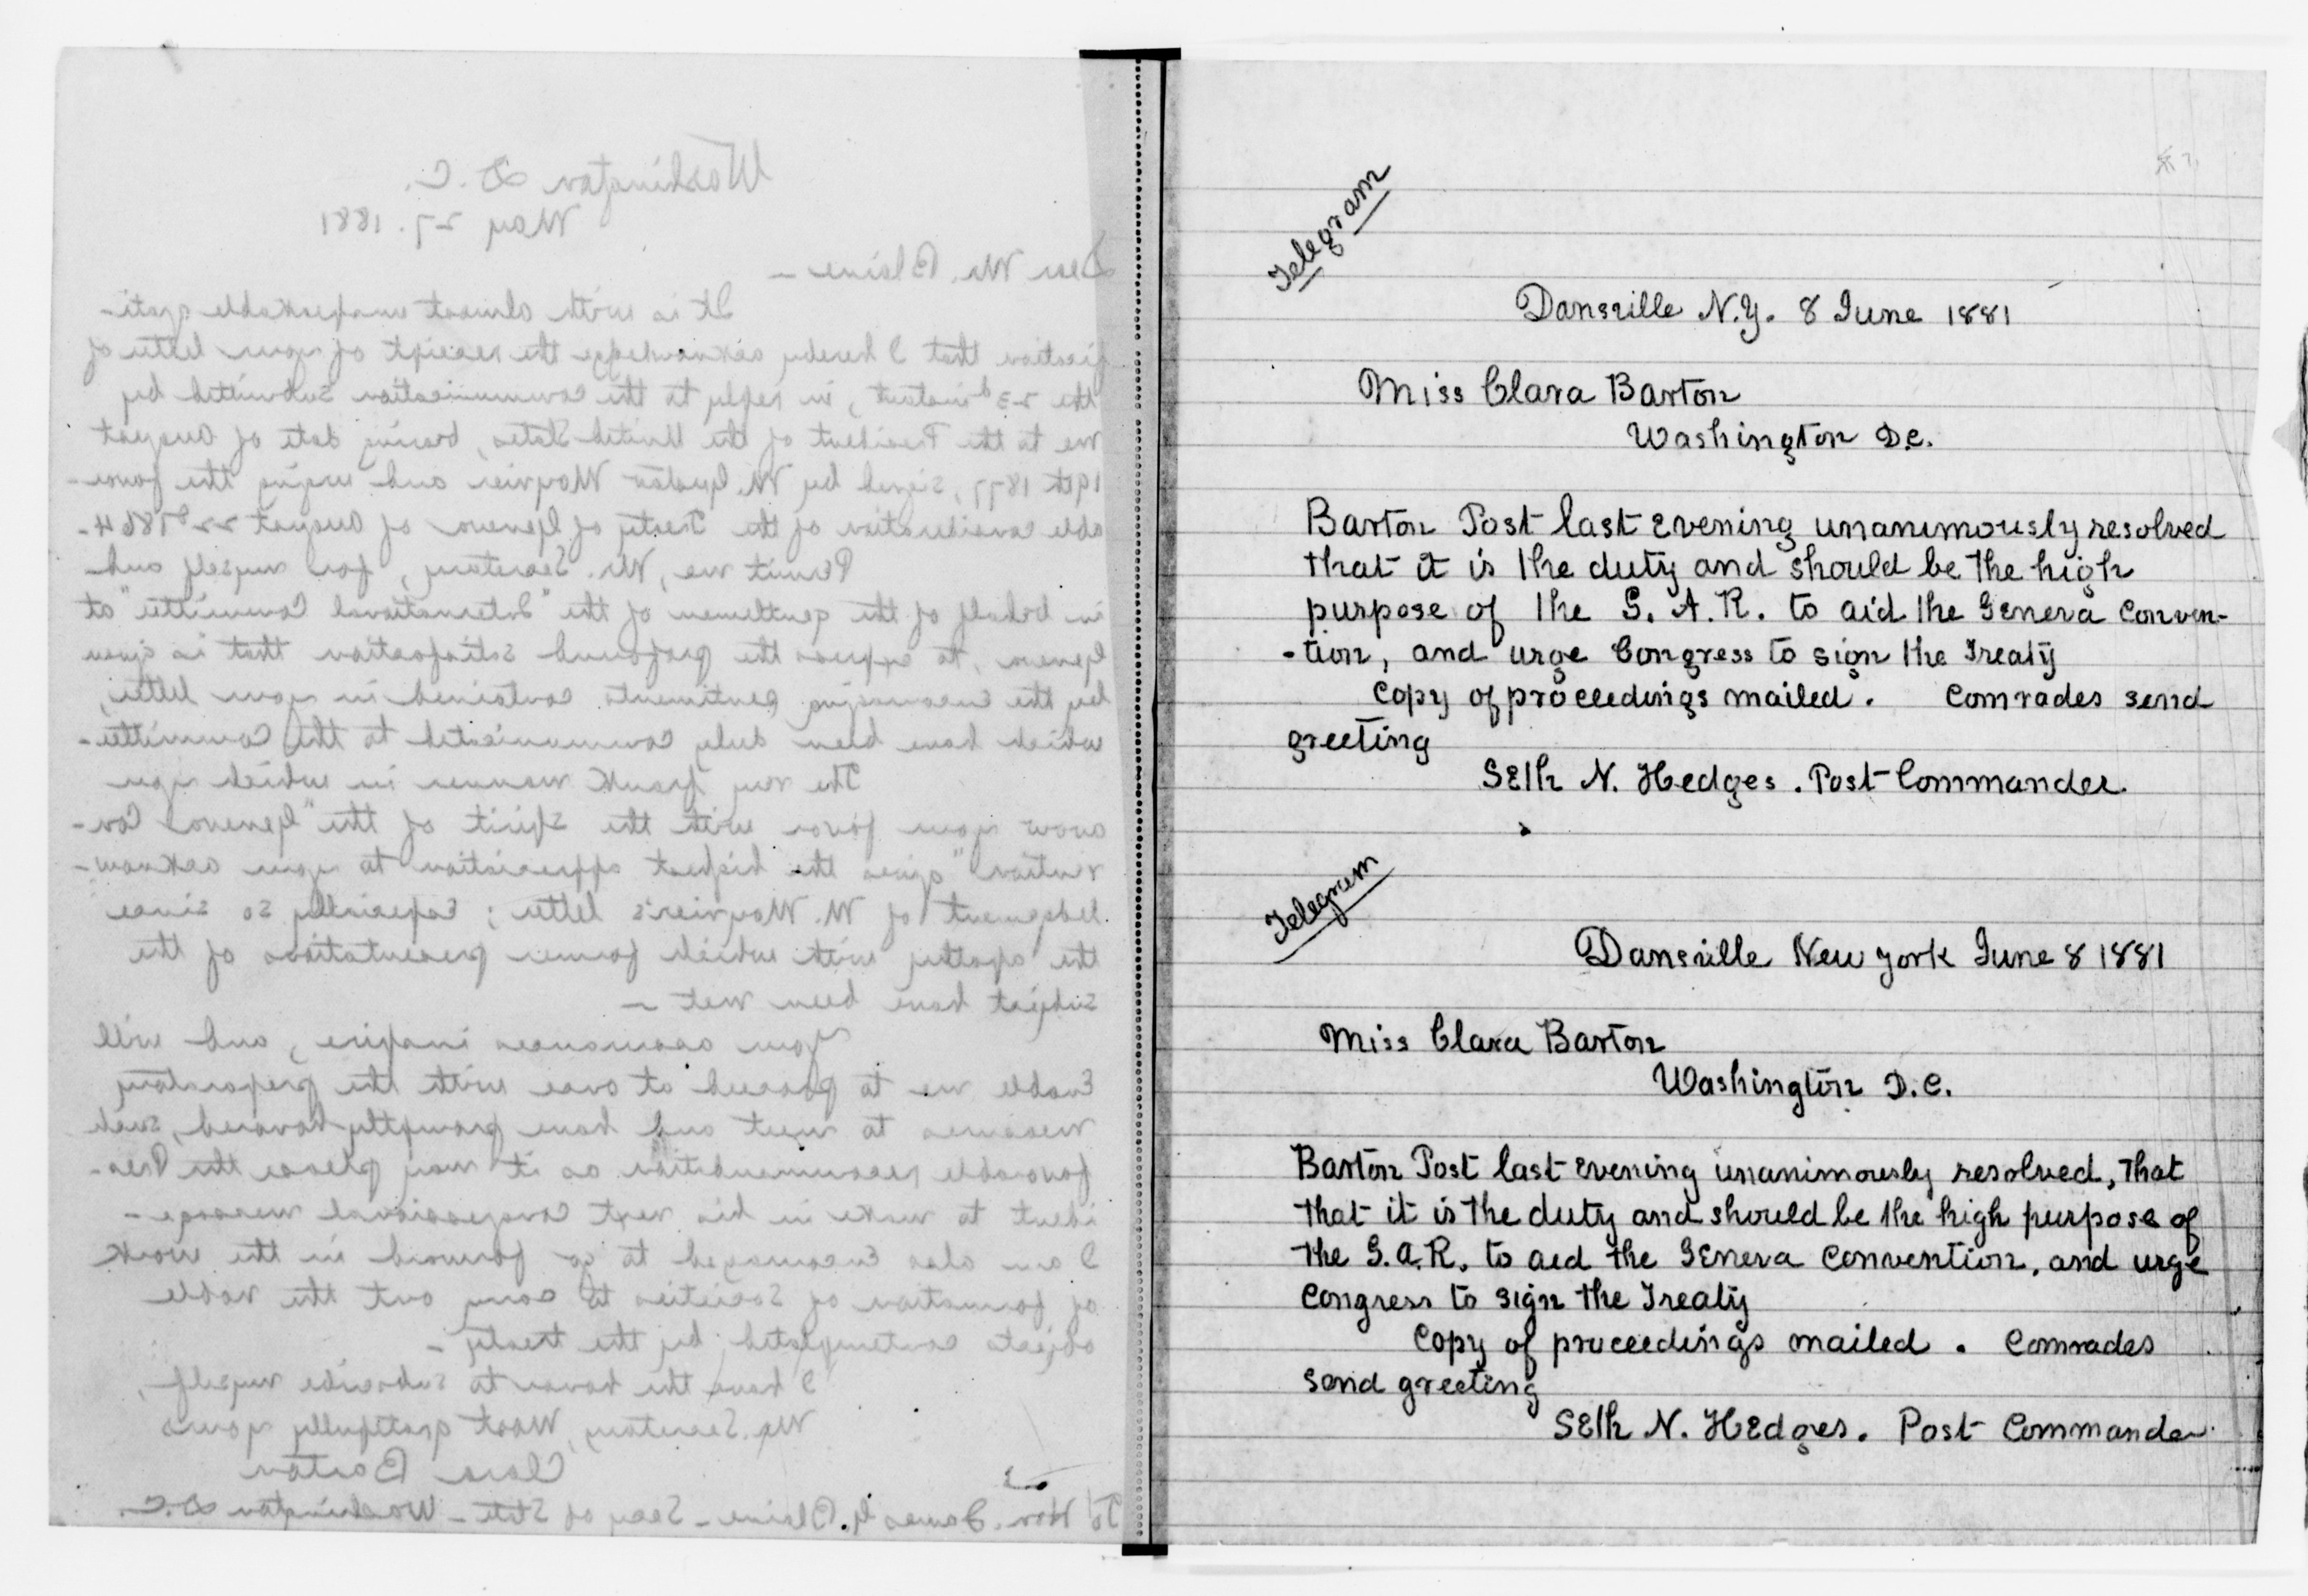 Washington D.C.
May 27. 1881
Dear Mr. Blaine —
It is with almost unspeakable grati-
fication that I hereby acknowledge the receipt of your letter of
the 23d instant, in reply to the communication submitted by
me to the President of the United States, bearing date of August
19th 1877, signed by M. Gustav Moynier and urging the favor-
able consideration of the Treaty of Geneva of August 22d 1864-
Permit me, Mr. Secretary, for myself and
in behalf of the gentlemen of the "International Committee" at
Geneva, to express the profound satisfaction that is given
by the encouraging sentiments contained in your letter,
which have been duly communicated to the Committee-
The very frank manner in which you
avow your favor with the spirit of the "Geneva Con-
vention" gives the highest appreciation to your acknow-
ledgement of M. Moynier's letter; Especially so since
the apathy with which former presentations of the
subject have been met —
Your assurances inspire, and will
Enable me to proceed at once with the preparatory
measures to meet and have promptly honored, such
favorable recommendation as it may please the Pres-
ident to make in his next congressional message —
I am also Encouraged to go forward in the work
of formation of Societies to carry out the noble
objects contemplated by the treaty —
I have the honor to subscribe myself,
Mr. Secretary, Most gratefully yours
Clara Barton
To Hon. James G. Blaine - Secy of State - Washington D.C.
Telegram
Dansville N.Y. 8 June 1881
Miss Clara Barton
Washington D.C.
Barton Post last Evening unanimously resolved
that it is the duty and should be the high
purpose of the G. A. R. to aid the Geneva Conven-
-tion, and urge Congress to sign the Treaty
Copy of proceedings mailed. Comrades send
greeting
Seth N. Hedges. Post Commander.
Telegram
Dansville New York June 8 1881
Miss Clara Barton
Washington D.C.
Barton Post last Evening unanimously resolved, that
that it is the duty and should be the high purpose of
the G.A.R. to aid the Geneva Convention, and urge
Congress to sign the Treaty
Copy of proceedings mailed. Comrades
send greeting
Seth N. Hedges. Post Commander